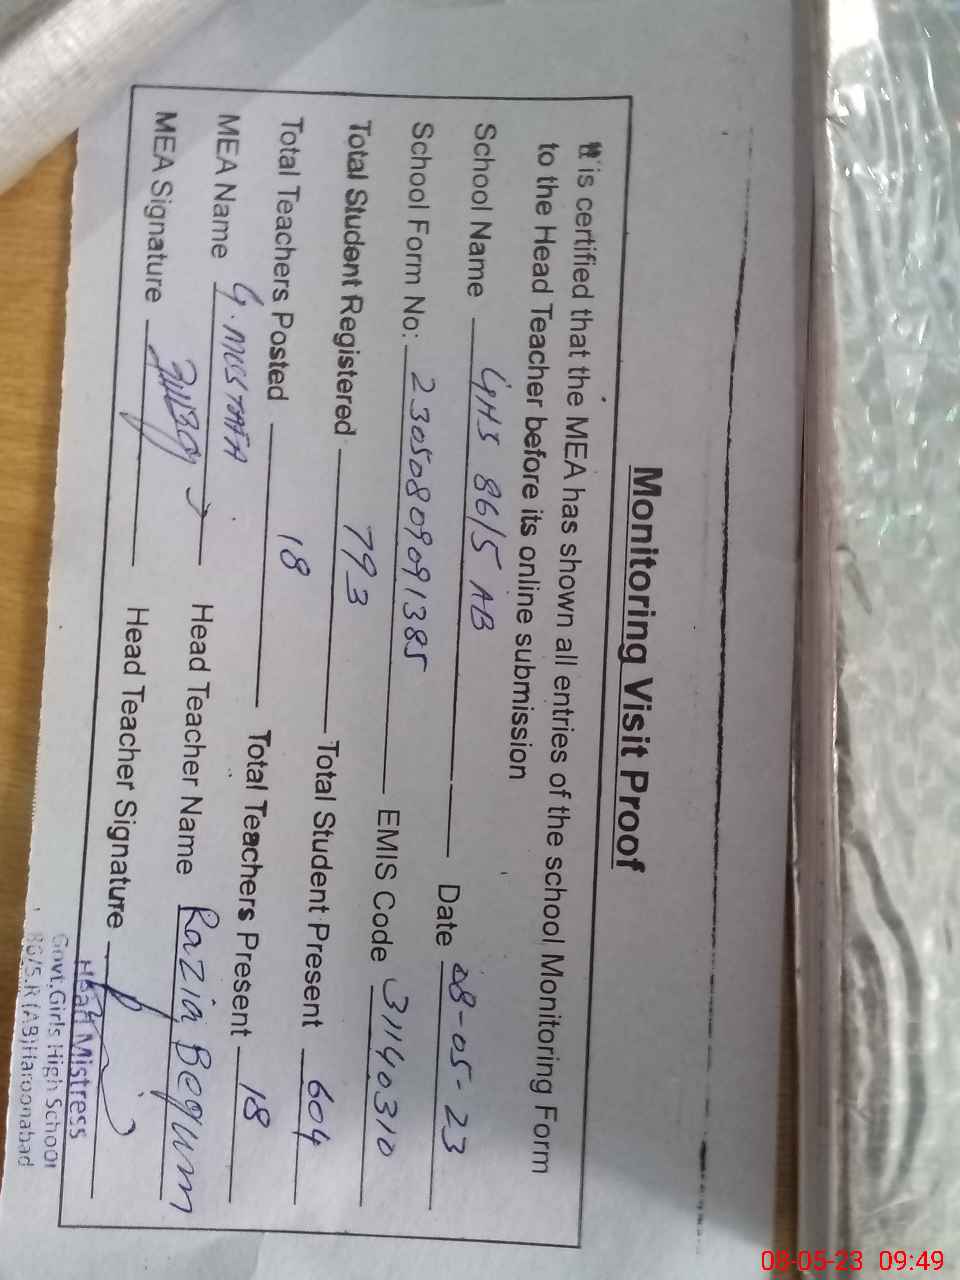 Monitoring Visit Proof
It is certified that the MEA has shown all entries of the school Monitoring Form
to the Head Teacher before its online submission
School Name GHS 86/5 AB Date 08-05-23
School Form No: 23050809091385 EMIS Code 31140310
Total Student Registered 793 Total Student Present 604
Total Teachers Posted 18 Total Teachers Present 18
MEA Name G. MUSTAFA Head Teacher Name Razia Begum
MEA Signature Head Teacher Signature
Head Mistress
Govt. Girls High School
86/5.R (AB) Haroonabad
08-05-23 09:49